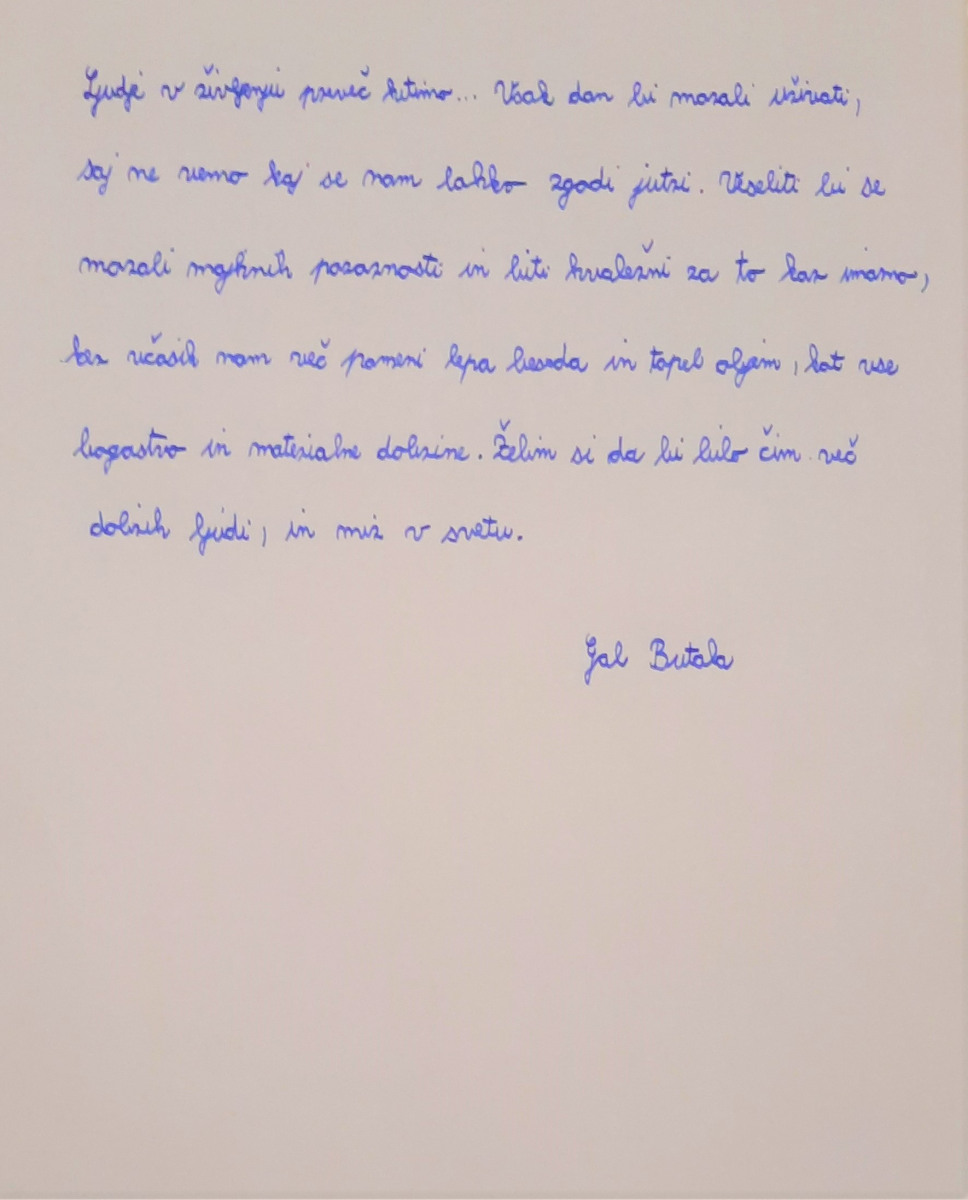 Ljudje v življenju preveč hitimo... Vsak dan bi morali uživati,
saj ne vemo kaj se nam lahko zgodi jutri. Veseliti bi se
morali majhnih pozornosti in biti hvaležni za to kar imamo,
ker včasih nam več pomeni lepa beseda in topel objem, kot vse
bogastvo in materialne dobrine. Želim si da bi bilo čim več
dobrih ljudi, in mir v svetu.
Gal Butala